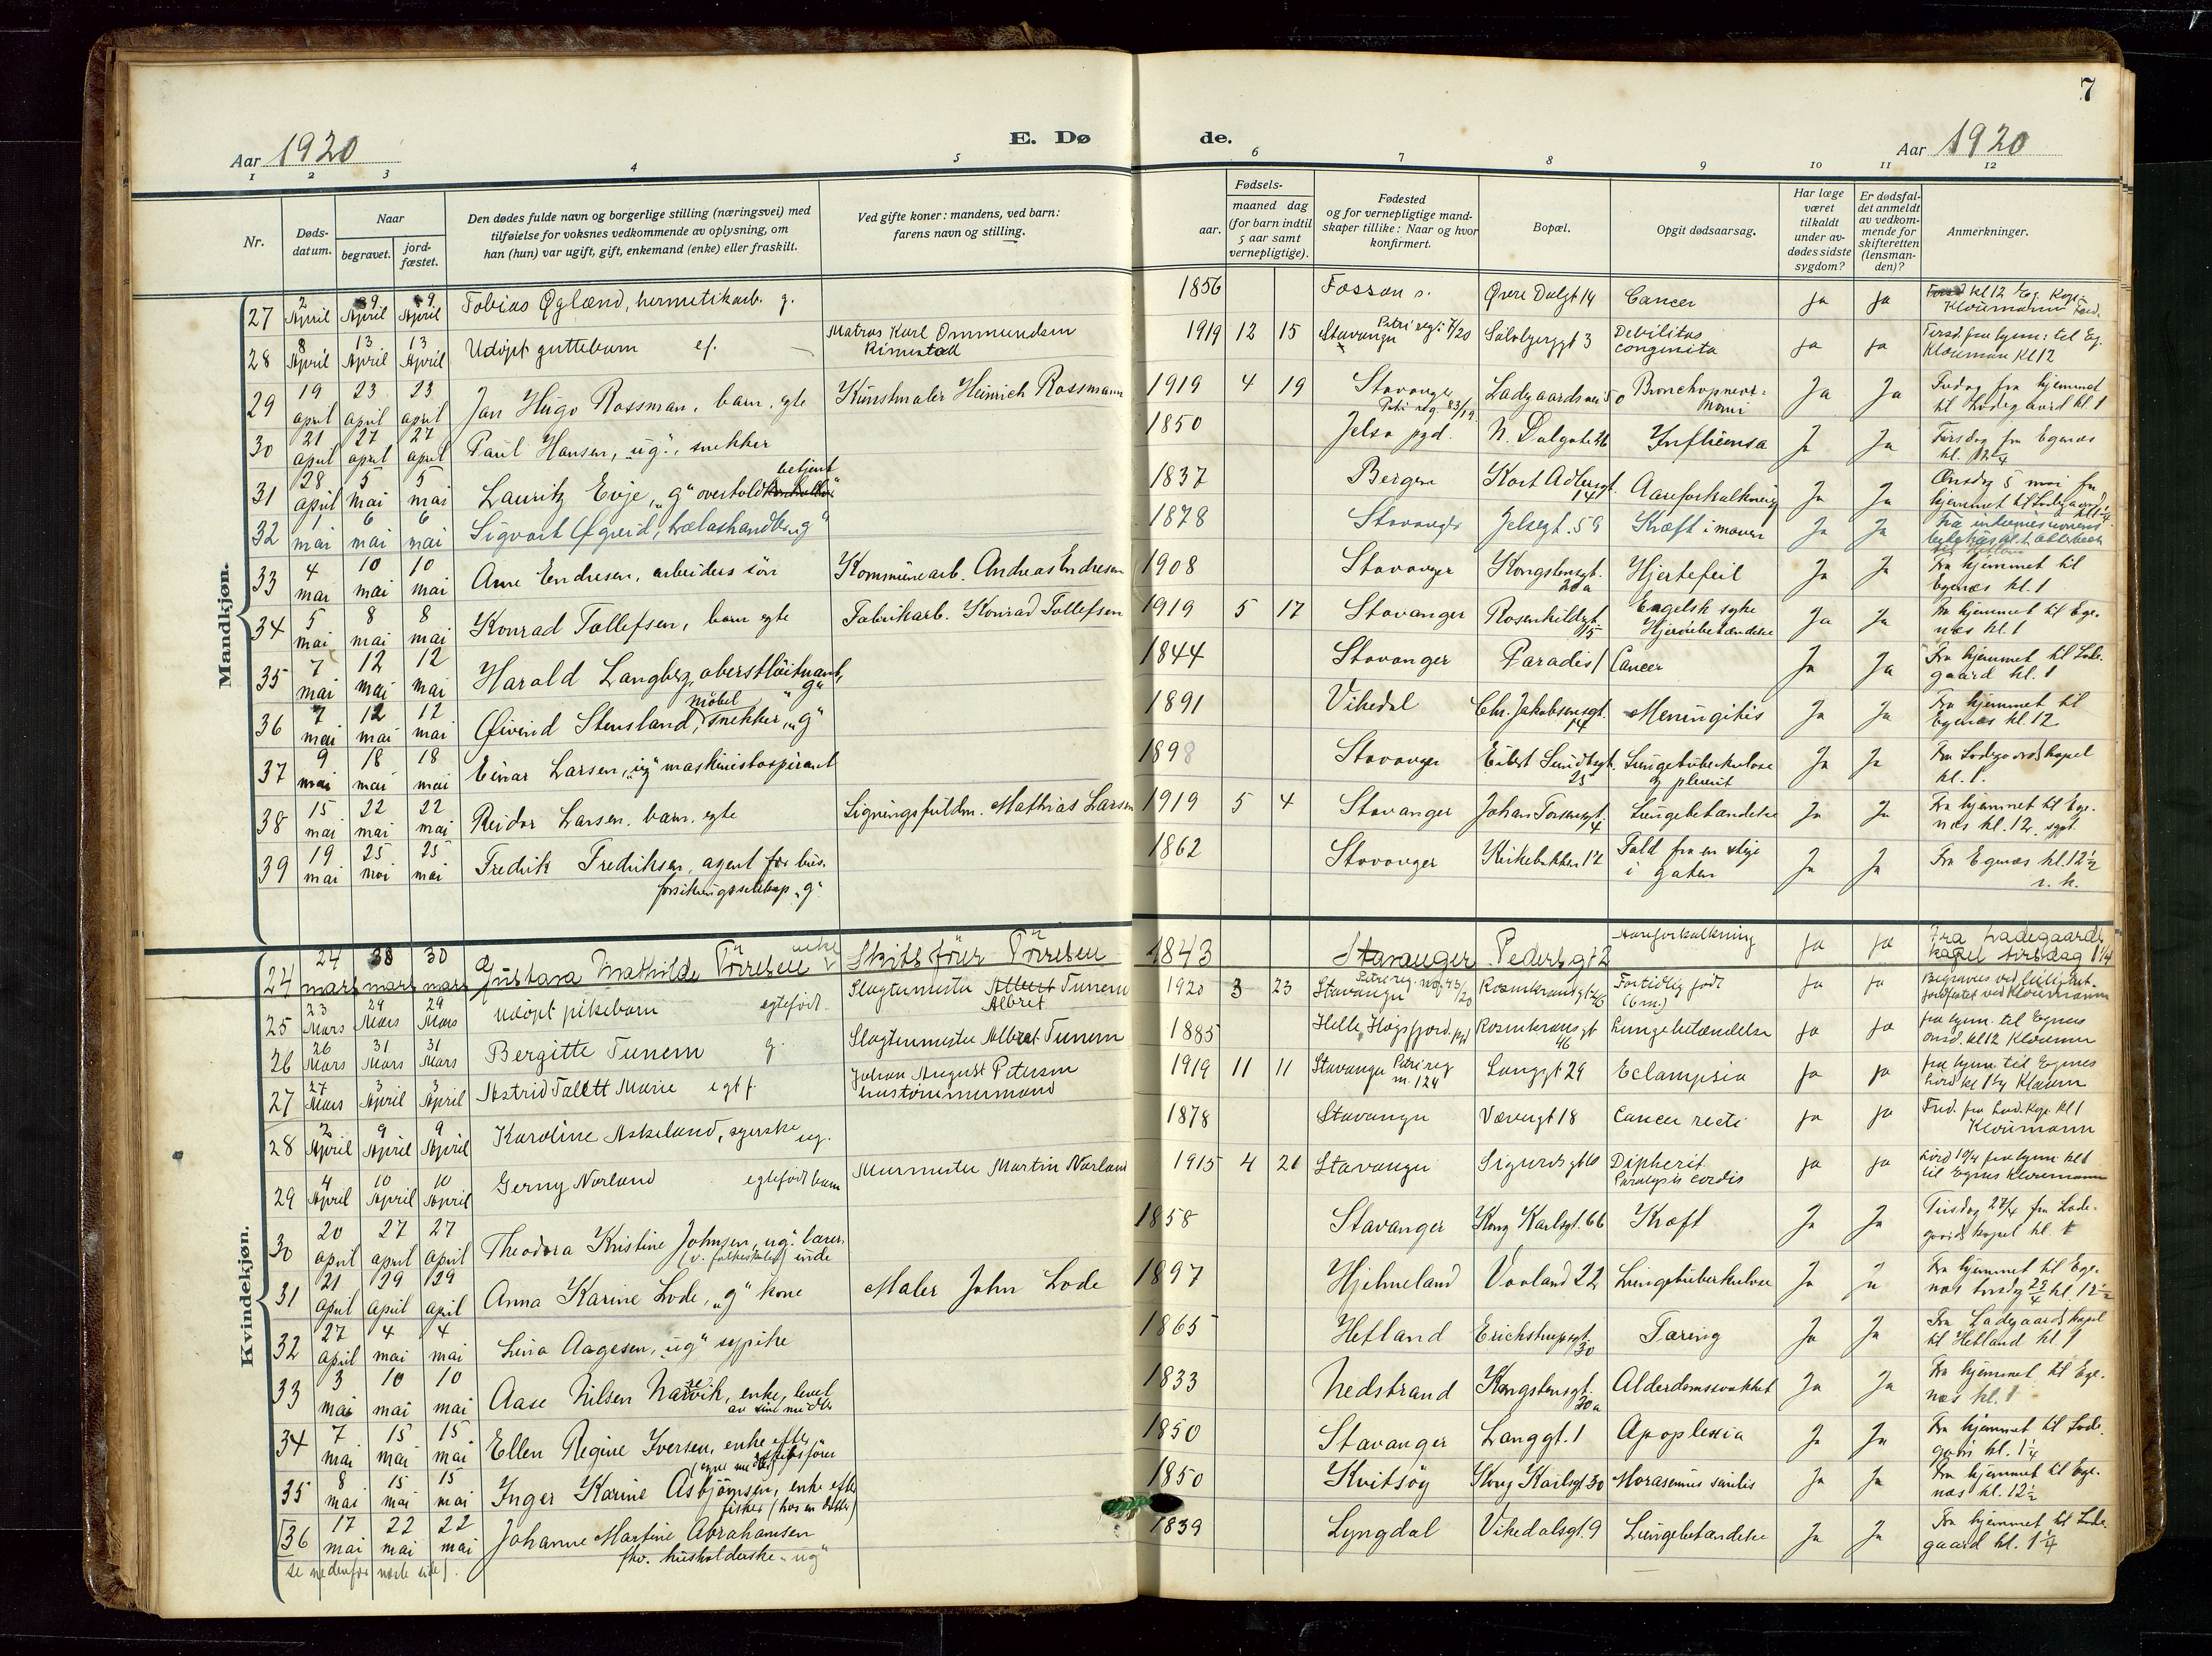 7
Aar 1920
E. Dø
de.
Aar 1920
1 2 3 4 5 6 7 8 9 10 11 12
Nr.
Døds-
datum.
Naar
begravet.
jord-
fæstet.
Den dødes fulde navn og borgerlige stilling (næringsvei) med
tilføielse for voksnes vedkommende av oplysning, om
han (hun) var ugift, gift, enkemand (enke) eller fraskilt.
Ved gifte koner: mandens, ved barn:
farens navn og stilling.
Fødsels-
aar.
maaned dag
(for barn indtil
5 aar samt
vernepligtige).
Fødested
og for vernepligtige mand-
skaper tillike: Naar og hvor
konfirmert.
Bopæl.
Opgit dødsaarsag.
Har læge
været
tilkaldt
under av-
dødes sidste
sygdom?
Er dødsfal-
det anmeldt
av vedkom-
mende for
skifteretten
(lensman-
den)?
Anmerkninger.
Mandkjøn.
27 2 April 9 April 9 April Tobias Øgland, hermetikarb. g. 1856 Fossan Øvre Dalgt 14 Cancer ja ja kl 12
28 8 April 13 April 13 April Udøpt guttebarn ef. Matros Karl Ommundsen Rimestad 1919 12 15 Stavanger 3 Debilitas congenita ja ja Klouman kl 12
29 19 april 23 april 23 april Jan Hugo Rossman, barn, egte Kunstmaler Heinrich Rossmann 1919 4 19 Stavanger Ladegaardsvei 50 Ja Ja Fredag fra hjemmet til Ladegaard kl. 1
30 21 april 27 april 27 april Paul Hansen, "ug", snekker 1850 Jelsa pgd. N. Dalgate 26 Influensa Ja Ja Tirsdag fra Egenæs
31 28 april 5 mai 5 mai Lauritz Evje, "g" overtoldbetjent 1837 Bergen Kort Adlersgt. 14 Aareforkalkning Ja Ja Onsdag 5 mai fra hjemmet til Ladegaard
32 1 mai 6 mai 6 mai Sigvart Øgreid, "g" 1878 Stavanger Jelsegt. 59 Kræft i maven Ja Ja
33 4 mai 10 mai 10 mai Arne Endresen, arbeiders søn Kommunearb. Andreas Endresen 1908 Stavanger Kongstensgt. 20a Hjertefeil Ja Ja Fra hjemmet til Egenæs kl. 1
34 5 mai 8 mai 8 mai Konrad Tollefsen, barn egte Fabrikarb. Konrad Tollefsen 1919 5 17 Stavanger Rosenkildegt. 15 Engelsk syke Hjernebetændelse Ja Ja Fra hjemmet til Egenæs kl. 1
35 7 mai 12 mai 12 mai Harald Langberg, oberstløitnant, "g" 1844 Stavanger Paradis 1 Cancer Ja Ja Fra hjemmet til Ladegaard kl. 1
36 7 mai 12 mai 12 mai Øivind Stensland, møbelsnekker, "g" 1891 Vikedal Chr. Jakobsensgt. 14 Meningitis Ja Ja Fra hjemmet til Egenæs kl. 12
37 9 mai 18 mai 18 mai Einar Larsen, "ug" maskinistaspirant 1898 Stavanger Eilert Sundtsgt. 25 Lungetuberkulose og pleurit Ja Ja Fra Ladegaards kapel kl. 1.
38 15 mai 22 mai 22 mai Reidar Larsen, barn, egte Ligningsfuldm. Mathias Larsen 1919 5 4 Stavanger Johan Torkensgt. 4 Lungebetændelse Ja Ja Fra hjemmet til Egenæs kl. 12
39 19 mai 25 mai 25 mai Fredrik Fredriksen, agent for brandforsikringsselskap "g" 1862 Stavanger Kirkebakken 12 Fald fra en stige i gaten Ja Ja Fra Egenæs kl. 12½
Kvindekjøn.
24 24 mars 30 mars 30 mars Gustava Mathilde Törresen enke Skibsförer Törresen 1843 Stavanger Pedersgt 2 Aareforkalkning ja ja Fra Ladegaards kapel tirsdag
25 23 Mars 29 Mars 29 Mars Udøpt pikebarn egtefødt Slagtermester Albret Tunem 1920 3 23 Stavanger Rosenkransgt 46 Fortidlig født (6 m.) ja ja
26 26 Mars 31 Mars 31 Mars Bergitte Tunem g. Slagtermester Albret Tunem 1885 Helle Høgsfjord Rosenkransgt 46 Lungebetændelse ja ja fra hjem. til Egenes onsd. kl 12 Kloumann
27 27 Mars 3 April 3 April Astrid Marie egt f. Johan August Petersen hustømmermand 1919 11 11 Stavanger Langgt 29 Eclampsia ja ja fra hjem til Egenes
28 2 April 9 April 9 April Karoline Askeland, syerske ug. 1878 Stavanger Vævergt 18 Cancer recti ja ja Kloumann
29 4 April 10 April 10 April Gerny Norland egtefødt barn Murmester Martin Norland 1915 4 21 Stavanger Dipherit Paralysis cordis ja ja
30 20 april 27 april 27 april Theodora Kristine Johnsen, "ug" lærerinde (v. folkeskolen) 1858 Stavanger Kong Karlsgt. 66 Kræft Ja Ja Tirsdag 27/4 fra Ladegaards kapel kl. 1
31 21 april 29 april 29 april Anna Karine Lode, "g" kone Maler John Lode 1897 Hjelmeland Vaaland 22 Lungetuberkulose Ja Ja Fra hjemmet til Egenæs torsdag 29/4 kl. 12½
32 27 april 4 mai 4 mai Lina Aagesen, "ug" sypike 1865 Hetland Erichstrupsgt. 30 Tæring Ja Ja Fra Ladegaards kapel til Hetland kl. 1
33 3 mai 10 mai 10 mai Aase Nilsen enke, levet av sine midler 1833 Nedstrand Kongstensgt. 20a Alderdomssvakhet Ja Ja Fra hjemmet til Egenæs kl. 1
34 7 mai 15 mai 15 mai Ellen Regine Iversen, enke efter skibsfører 1850 Stavanger Langgt. 1 Apoplexia Ja Ja Fra hjemmet til Ladegaard kl. 1¼
35 8 mai 15 mai 15 mai Inger Karine Asbjørnsen, enke efter fisker (hos en datter) 1850 Kvitsøy Kong Karlsgt 30 Ja Ja Fra hjemmet til Egenæs kl. 12½
36 17 mai 22 mai 22 mai Johanne Martine Abrahamsen fhv. husholderske "ug" 1839 Lyngdal Vikedalsgt. 9 Lungebetændelse Ja Ja Fra hjemmet til Ladegaard kl. 1¼
se nedenfor næste side).